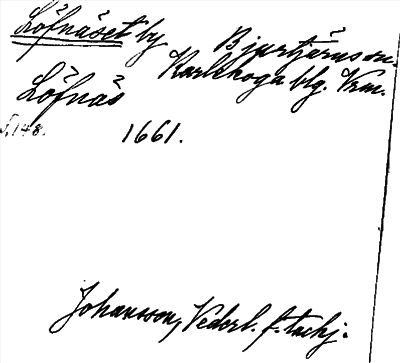 Löfnäset by Bjurtjärns sn.
Karlskoga blg. Vrm.
Löfnäs
s. 148. 1661.
Johansson, Vederl. f. tackj.